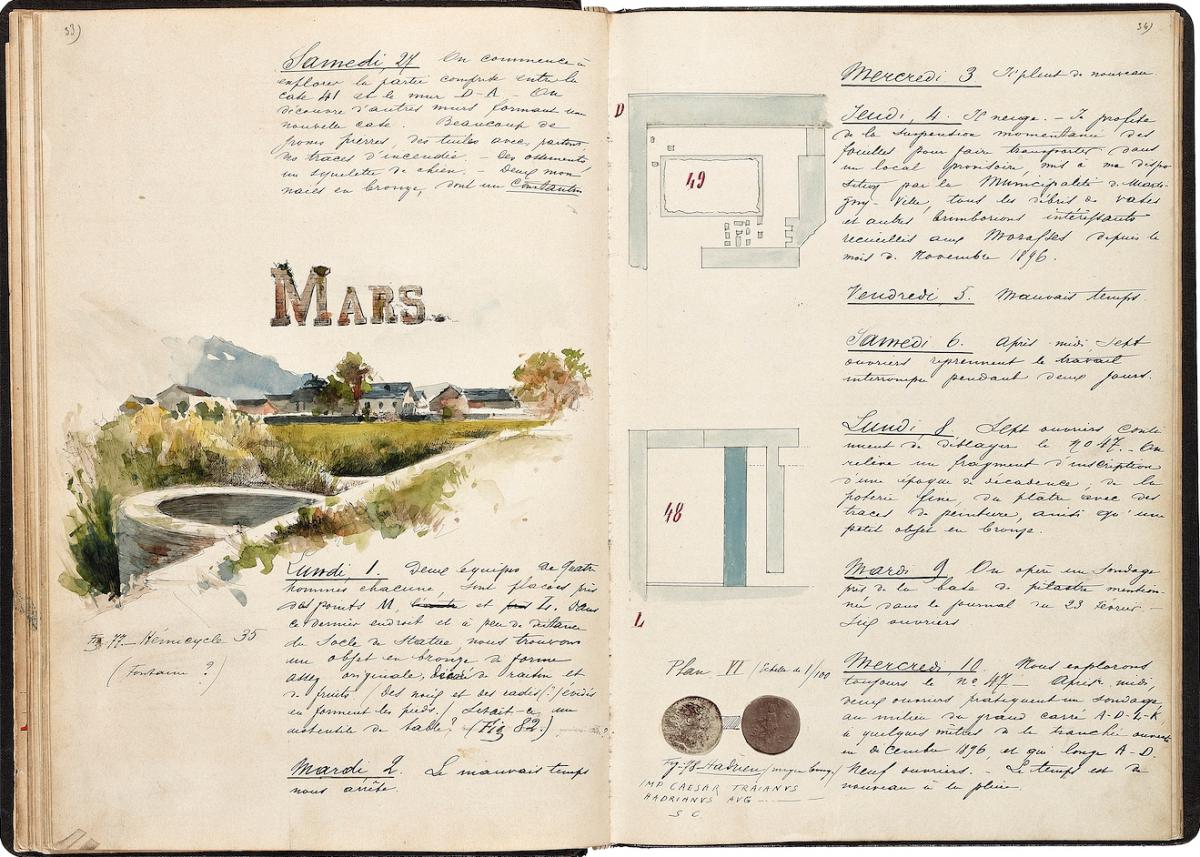 33)
Samedi, 27 On commence à
explorer la partie comprise entre la
case 41 et le mur D-A - On
découvre d'autres murs formant une
nouvelle case. Beaucoup de
grosses pierres, des tuiles avec partout
des traces d'incendie. - Des ossements,
un squelette de chien. - Deux mon-
naies en bronze, dont un Constantin
MARS.
Lundi, 1. Deux équipes de quatre
hommes chacune, sont placées près
des points M, et L. Dans
ce dernier endroit et à peu de distance
du Socle de Statue, nous trouvons
un objet en bronze de forme
assez originale, décoré de raisin et
de fruits / des noix et des radis? / évidés
en forment les pieds. / Serait-ce un
ustensile de table? (Fig 82.)
Mardi 2. Le mauvais temps
nous arrête.
Fig 77 - Hémicycle 35
(Fontaine ?)
34)
D
49
48
L
Plan VI / Echelle de 1/100
Fig-78-Hadrien / moyen bronze /
IMP CAESAR TRAIANVS
HADRIANVS AVG
S C
Mercredi 3 Il pleut de nouveau
Jeudi, 4. Il neige. - Je profite
de la suspension momentanée des
fouilles pour faire transporter dans
un local provisoire, mis à ma dispo-
sition par la Municipalité de Marti-
gny-Ville, tous les débris de vases
et autres brimborions intéressants
recueillis aux Morasses depuis le
mois de Novembre 1896.
Vendredi, 5. Mauvais temps
Samedi 6. Après-midi Sept
ouvriers reprennent le travail
interrompu pendant deux jours.
Lundi 8. Sept ouvriers conti-
nuent de déblayer le No 47. - On
relève un fragment d'inscription
d'une époque de décadence, de la
poterie fine, du plâtre avec des
traces de peinture, ainsi qu'un
petit objet en bronze.
Mardi 9. On opère un Sondage
près de la base de pilastre mention-
née dans le journal du 23 février. -
Six ouvriers
Mercredi, 10. Nous explorons
toujours le No 47 - Après-midi,
deux ouvriers pratiquent un sondage,
au milieu du grand carré A-D-L-K,
à quelques mètres de la tranchée ouverte
en décembre 1896, et qui longe A-D.
Neuf ouvriers. - Le temps est de
nouveau à la pluie.